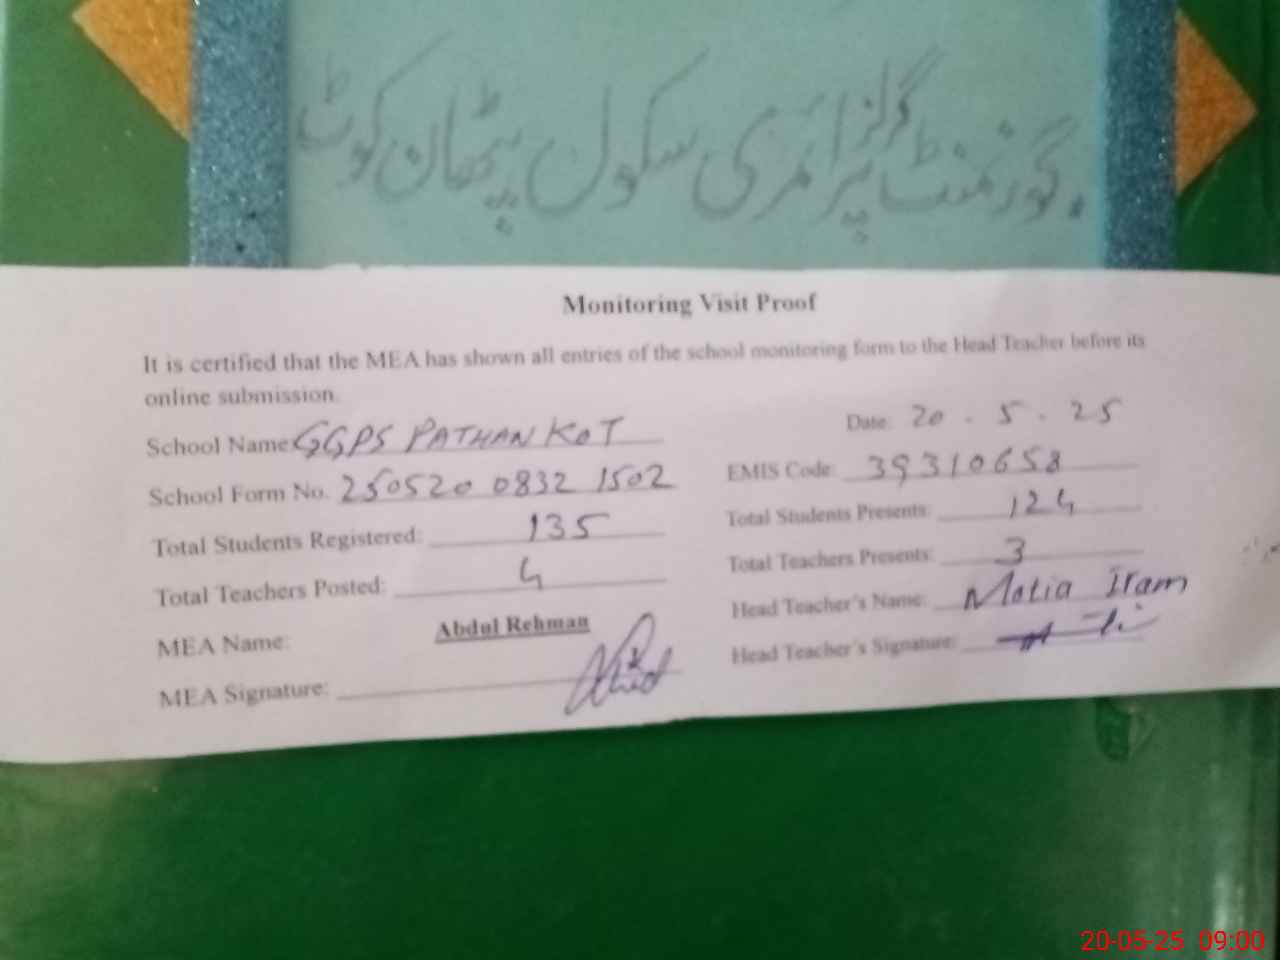 گورنمنٹ گرلز پرائمری سکول پٹھان کوٹ
Monitoring Visit Proof
It is certified that the MEA has shown all entries of the school monitoring form to the Head Teacher before its
online submission.
School Name: GGPS PATHAN KOT Date: 20 . 5 . 25
School Form No. 250520 0832 1502 EMIS Code: 39310658
Total Students Registered: 135 Total Students Presents: 124
Total Teachers Posted: 4 Total Teachers Presents: 3
MEA Name: Abdul Rehman Head Teacher's Name: Motia Iram
MEA Signature: Head Teacher's Signature:
20-05-25 09:00